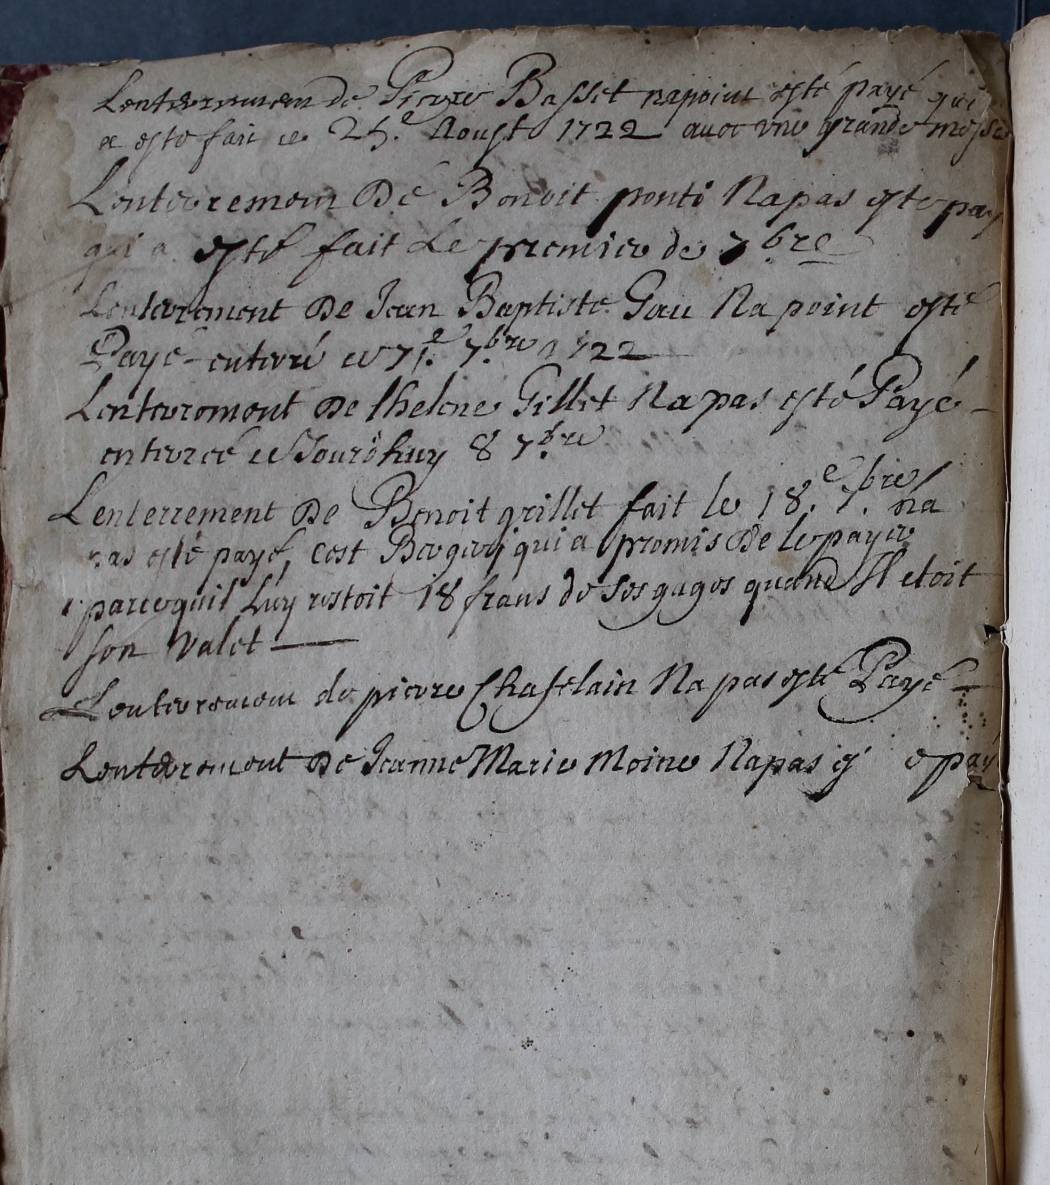 Lenterremem de Pierre Basset napoint esté payé qui
a esté fait ce 25.e Aoust 1722 avec une grande messe
Lenterremem De Benoit ponti Napas esté pay
qui a esté fait Le premier de 7.bre
Lenterrement De Jean Baptiste Gau Na point esté
Payé - enterré ce 7.bre 1722
Lenterrement de Thelene Gillet Na pas esté Payé -
enterreé ce Jourdhuy 8 7.bre
Lenterrement De Benoit grillet fait le 18.e 7.bre na
pas esté payé, cest qui a promis de le payer
parcequil Luy restoit 18 frans de ses gages quand Il etoit
son valet
Lenterremem de pierre Chastelain Na pas esté Payé -
Lenterrement De Jeanne Marie Moine Napas pay